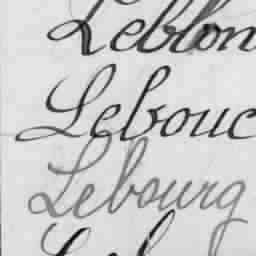 Leblon
Lebouc
Lebourg